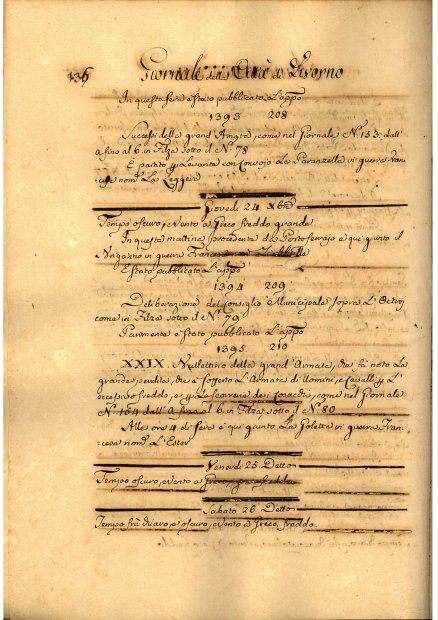 136 Giornale della Città di Livorno
In questa sera è stato pubblicato L'appo
1393 208
Successi della grand'Armata, come nel Giornale N. 153. dall'
A fino al 6 in Filza sotto il N.º 78
È partito Levante con Convojo La Paranzella in guerra Fran-
cese nom.ª La Leggera
Giovedì 24 Xbre
Tempo oscuro, e Vento a Greco freddo grande
In questa mattina procedente da Porto ferrajo è qui giunto il
in guerra Francese
E stato pubblicato L'appo
1394 209
Deliberazione del Consiglio Municipale sopra L'
come in Filza sotto il N.º 79
Parimente è stato pubblicato L'appo
1395. 210
XXIX. Bullettino della grand'Armata, che fà noto La
grande perdita, che à sofferto L'Armata di Uomini, e Cavalli L'
eccessivo freddo, e Le Scorrerie dei Cosacchi, come nel Giornale
N.º 154 dall'A fino al 6 in Filza sotto il N.º 80
Alle ore 4 di sera è qui giunto La Goletta in guerra Fran-
cese nom.ª L'Ester
Venerdì 25 Detto
Tempo oscuro, e Vento a Greco, freddo
Sabato 26 Detto
Tempo frà chiaro, e oscuro, e Vento a Greco, freddo